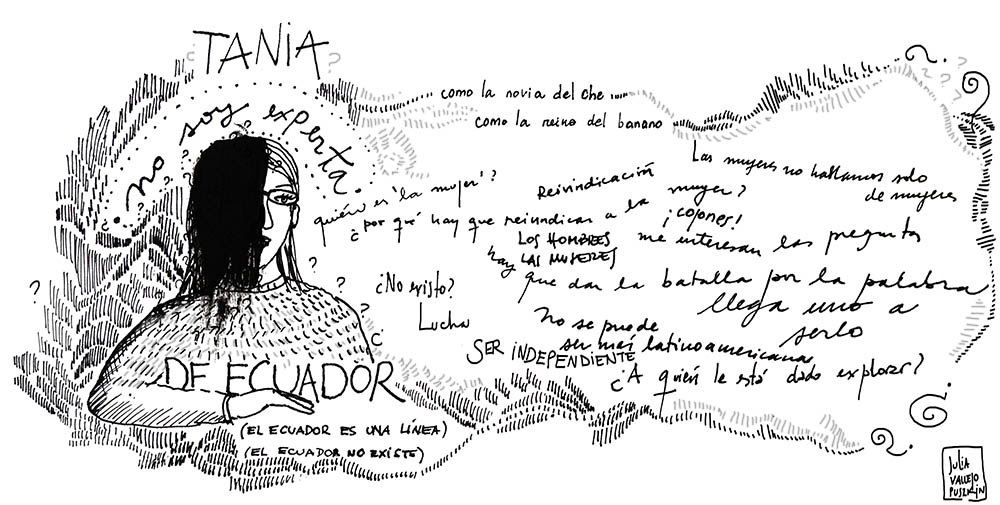 TANIA
no soy experta.
como la novia del che
como la reina del banano
Las mujeres no hablamos solo
de mujeres
quién es 'la mujer'?
Reivindicación
¿por qué hay que reivindicar a la mujer?
¡cojones!
LOS HOMBRES
LAS MUJERES
me interesan las pregunta
hay que dar la batalla por la palabra
¿No existo?
Lucha
llega uno a
serlo
No se puede
ser más latinoamericana
SER INDEPENDIENTE
¿A quién le está dado explorar?
DE ECUADOR
(EL ECUADOR ES UNA LÍNEA)
(EL ECUADOR NO EXISTE)
JULIA
VALLEJO
PUSZKIN